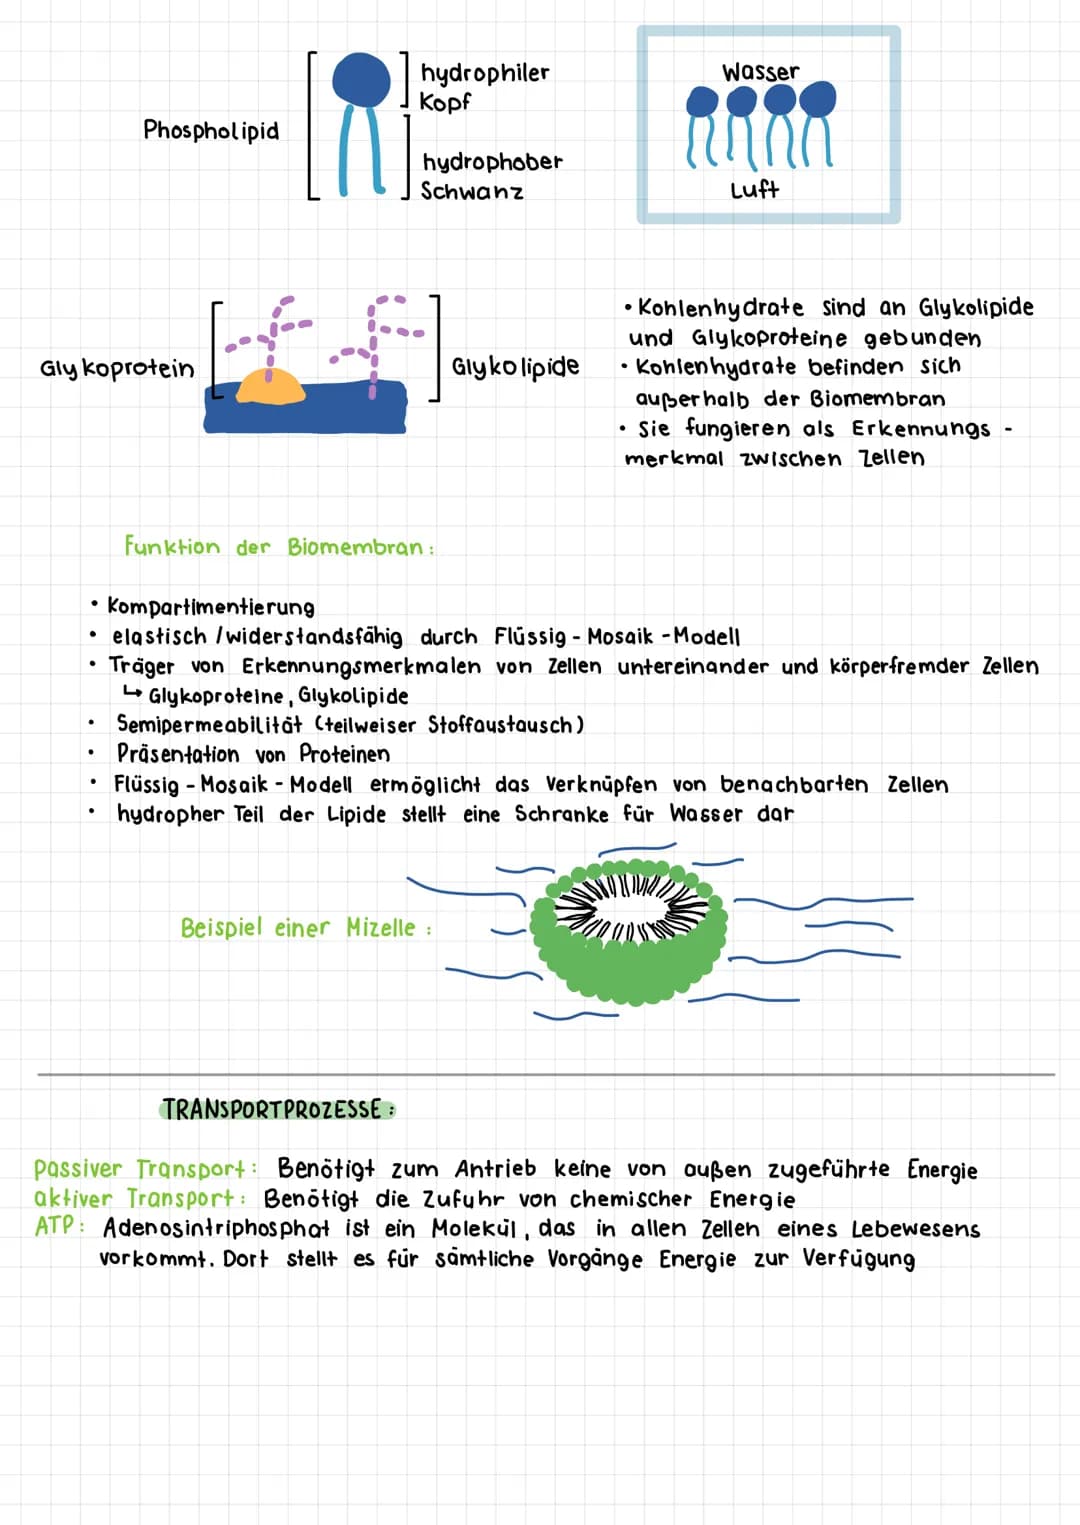 Phospholipid
hydrophiler
Kopf
hydrophober
Schwanz
Wasser
Luft
Glykoprotein
Glykolipide
• Kohlenhydrate sind an Glykolipide
und Glykoproteine gebunden
• Kohlenhydrate befinden sich
außerhalb der Biomembran
• Sie fungieren als Erkennungs -
merkmal zwischen Zellen
Funktion der Biomembran:
• Kompartimentierung
• elastisch / widerstandsfähig durch Flüssig - Mosaik - Modell
• Träger von Erkennungsmerkmalen von Zellen untereinander und körperfremder Zellen
↳ Glykoproteine, Glykolipide
• Semipermeabilität (teilweiser Stoffaustausch)
• Präsentation von Proteinen
• Flüssig - Mosaik - Modell ermöglicht das Verknüpfen von benachbarten Zellen
• hydropher Teil der Lipide stellt eine Schranke für Wasser dar
Beispiel einer Mizelle:
TRANSPORTPROZESSE:
passiver Transport: Benötigt zum Antrieb keine von außen zugeführte Energie
aktiver Transport: Benötigt die Zufuhr von chemischer Energie
ATP: Adenosintriphosphat ist ein Molekül, das in allen Zellen eines Lebewesens
vorkommt. Dort stellt es für sämtliche Vorgänge Energie zur Verfügung